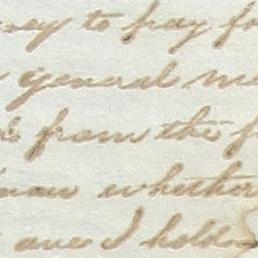 ey to pay fo
general me
from the f
now whether
one I hold